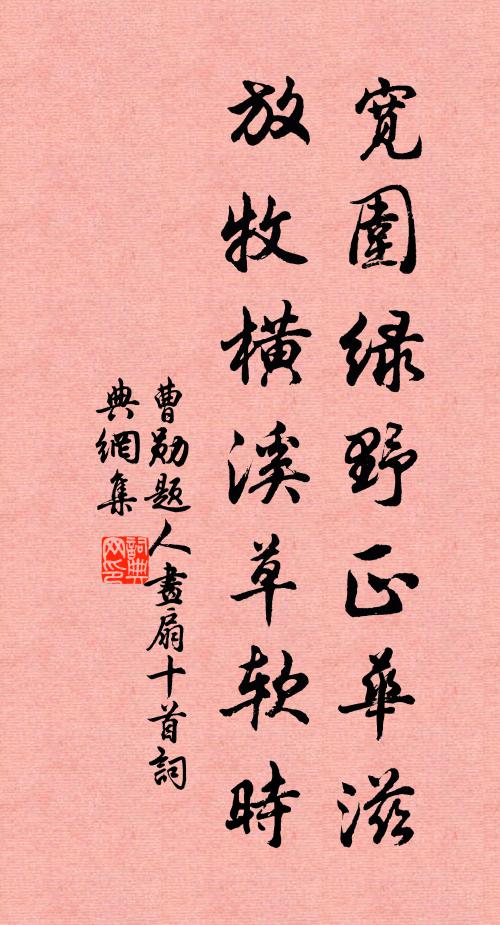 寬圍绿野正華滋
放牧橫溪草軟時
曹勛題人畫扇十首詞
典網集
詞典
网印